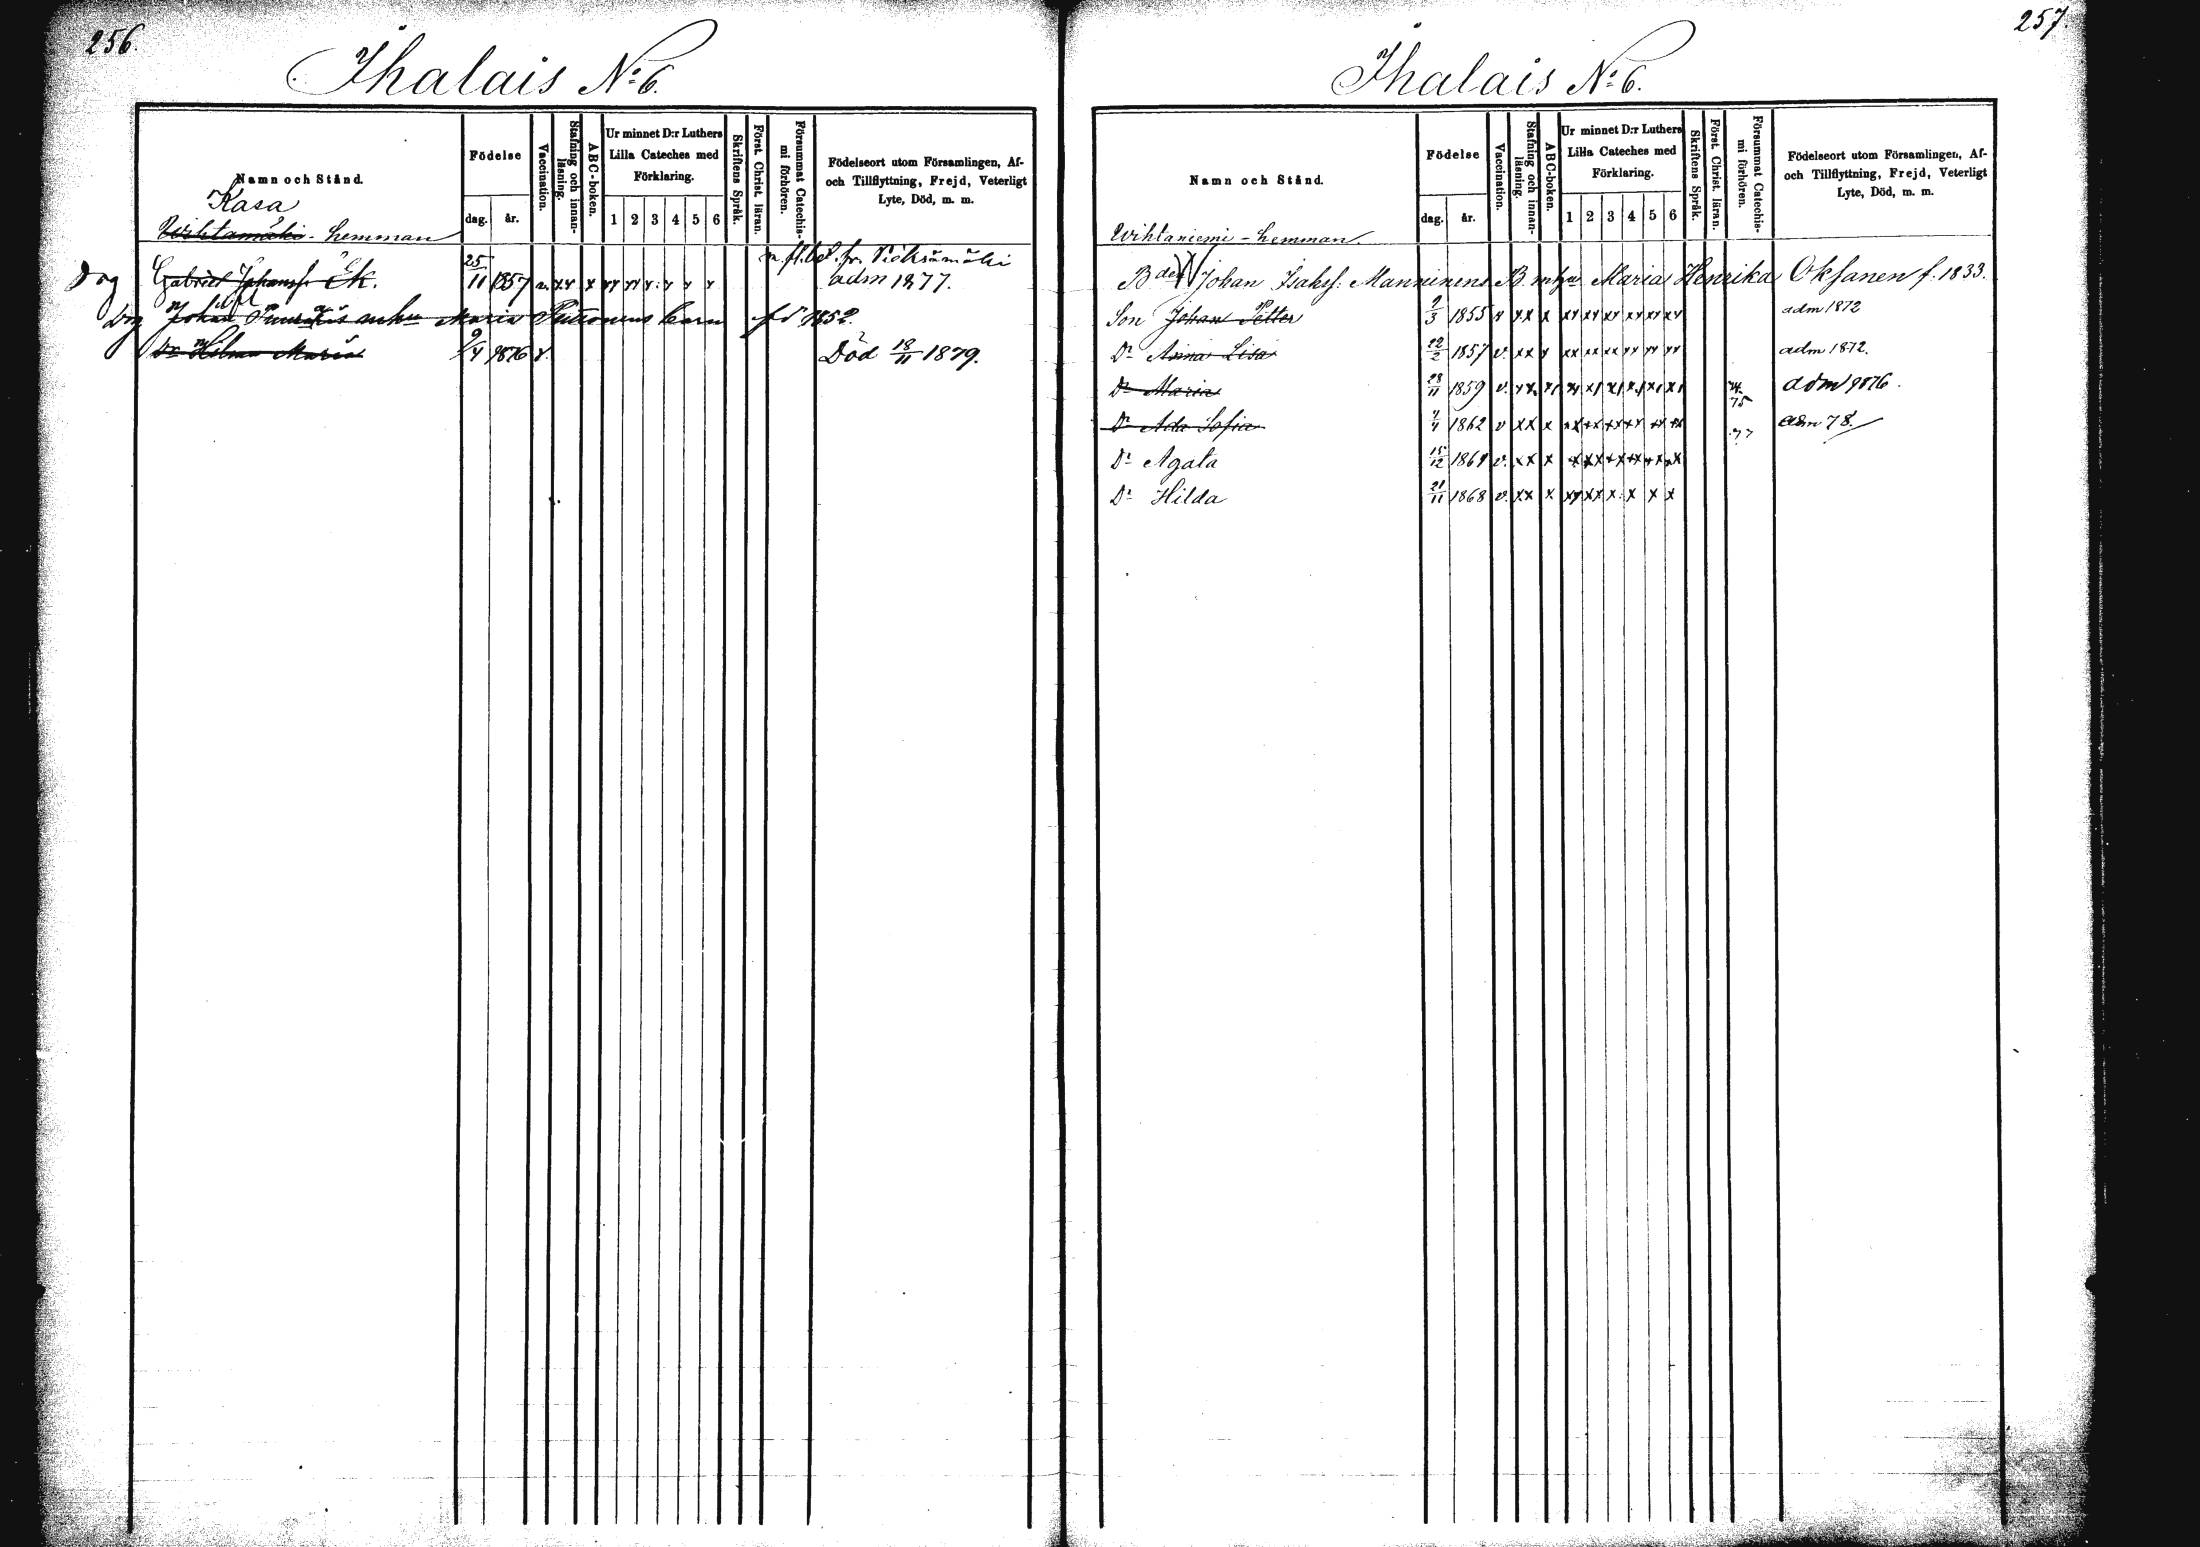 256.
Ihalais No 6.
Namn och Stånd.
Födelse
dag. år.
Vaccination.
Stafning och innan-läsning.
ABC-boken.
Ur minnet D:r Luthers Lilla Cateches med Förklaring.
1 2 3 4 5 6
Skriftens Språk.
Först. Christ. läran.
Försummat Catechis-mi förhören.
Födelseort utom Församlingen, Af- och Tillflyttning, Frejd, Veterligt Lyte, Död, m. m.
Kasa
Wihtamäki - hemman
n. fl. bet. fr. Pieksämäki
Dog Gabriel Johanss. Ek. 25/11 1857 v. xx x xx xx x x x x adm 1877.
Drg Johan mhu Maria Puttonens barn fd 1852.
Dr Hilma Maria 9/4 1876 v. Död 18/11 1879.
257.
Ihalais No 6.
Namn och Stånd.
Födelse
dag. år.
Vaccination.
Stafning och innan-läsning.
ABC-boken.
Ur minnet D:r Luthers Lilla Cateches med Förklaring.
1 2 3 4 5 6
Skriftens Språk.
Först. Christ. läran.
Försummat Catechis-mi förhören.
Födelseort utom Församlingen, Af- och Tillflyttning, Frejd, Veterligt Lyte, Död, m. m.
Wihtaniemi - hemman.
Bden Johan Isakss. Manninens B. mhu Maria Henrika Oksanen f. 1833.
Son Johan Petter 9/3 1855 v xx x xx xx xx xx xx xx adm 1872
Dr Anna Lisa 22/2 1857 v. xx x xx xx xx xx xx xx adm 1872.
Dr Maria 28/11 1859 v. xx x x x x x x x 75 adm 1876.
Dr Ada Sofia 7/4 1862 v xx x xx xx xx xx xx xx 77 adm 78.
Dr Agata 15/12 1864 v. xx x xx xx xx xx xx xx
Dr Hilda 21/11 1868 v. xx x xx xx x x x x